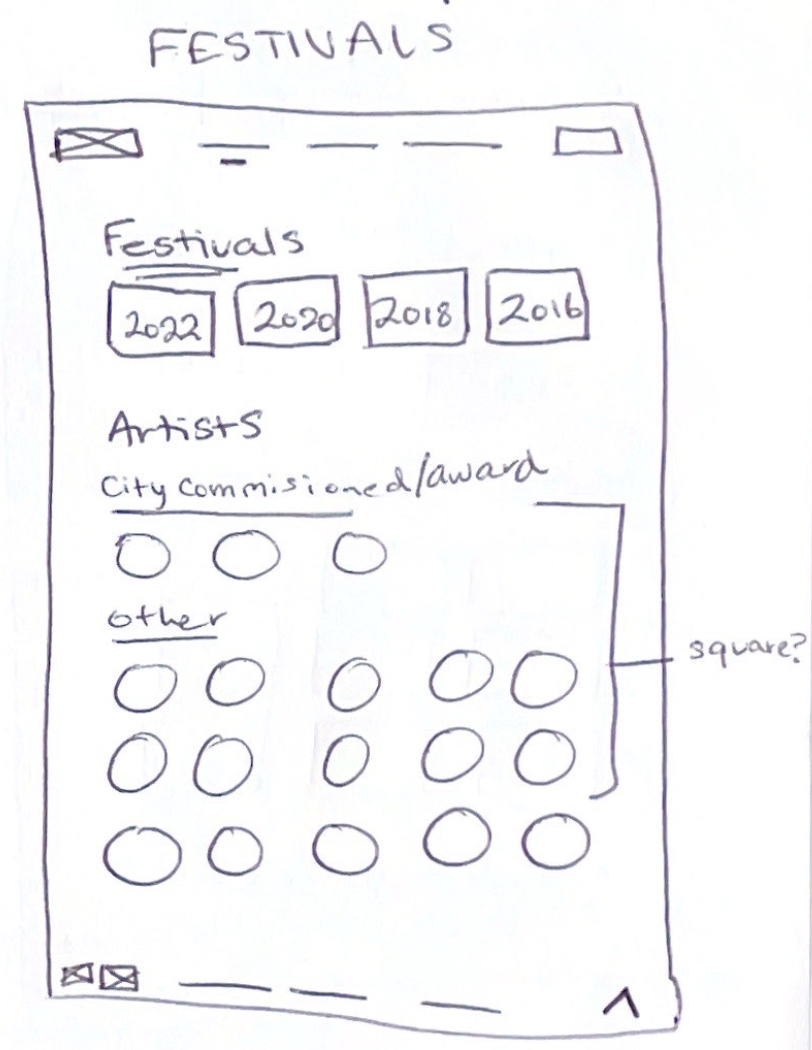 FESTIVALS
Festivals
2022 2020 2018 2016
Artists
City Commisioned/award
other
square?